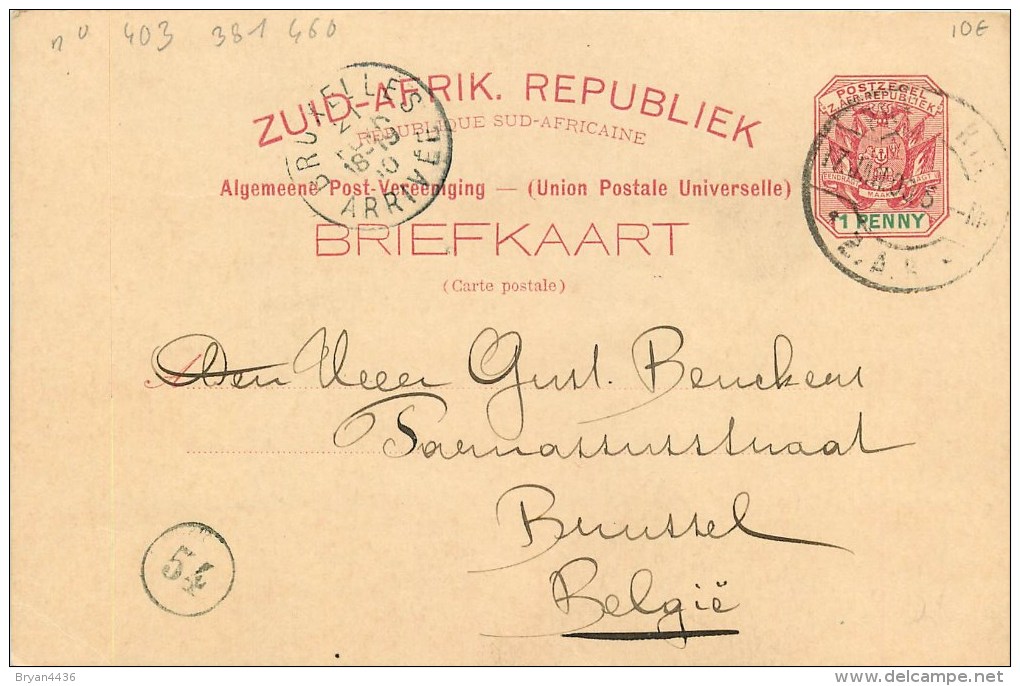 nº 403 381 460
10€
ZUID-AFRIK. REPUBLIEK
REPUBLIQUE SUD-AFRICAINE
Algemeene Post-Vereeniging — (Union Postale Universelle)
BRIEFKAART
(Carte postale)
POSTZEGEL
Z. AFR. REPUBLIEK
EENDRAGT MAAKT MAGT
1 PENNY
Z.A.R.
BRUXELLES
21
18-19
ARRIVÉE
Den Heer Gust. Beuckers
Parnassusstraat
Brussel
België
54
Bryan4436
delcampe.net